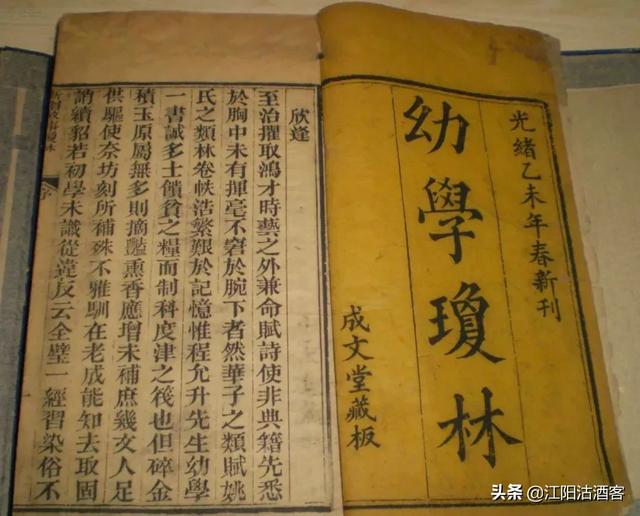 光緒乙未年春新刊
幼學瓊林
成文堂藏板
欣逢
至治擢取鴻才時藝之外兼命賦詩使非典籍先悉
於胸中未有揮毫不窘於腕下者然華子之類賦姚
氏之類林卷帙浩繁艱於記憶惟程允升先生幼學
一書誠多士饋貧之糧而制科度津之筏也但碎金
積玉原屬無多則摘豔熏香應增未補庶幾文人足
供驅使奈坊刻所補殊不雅馴在老成能知去取固
誚續貂若初學未識從違反云全璧一經習染俗不
頭條 @江阳沽酒客